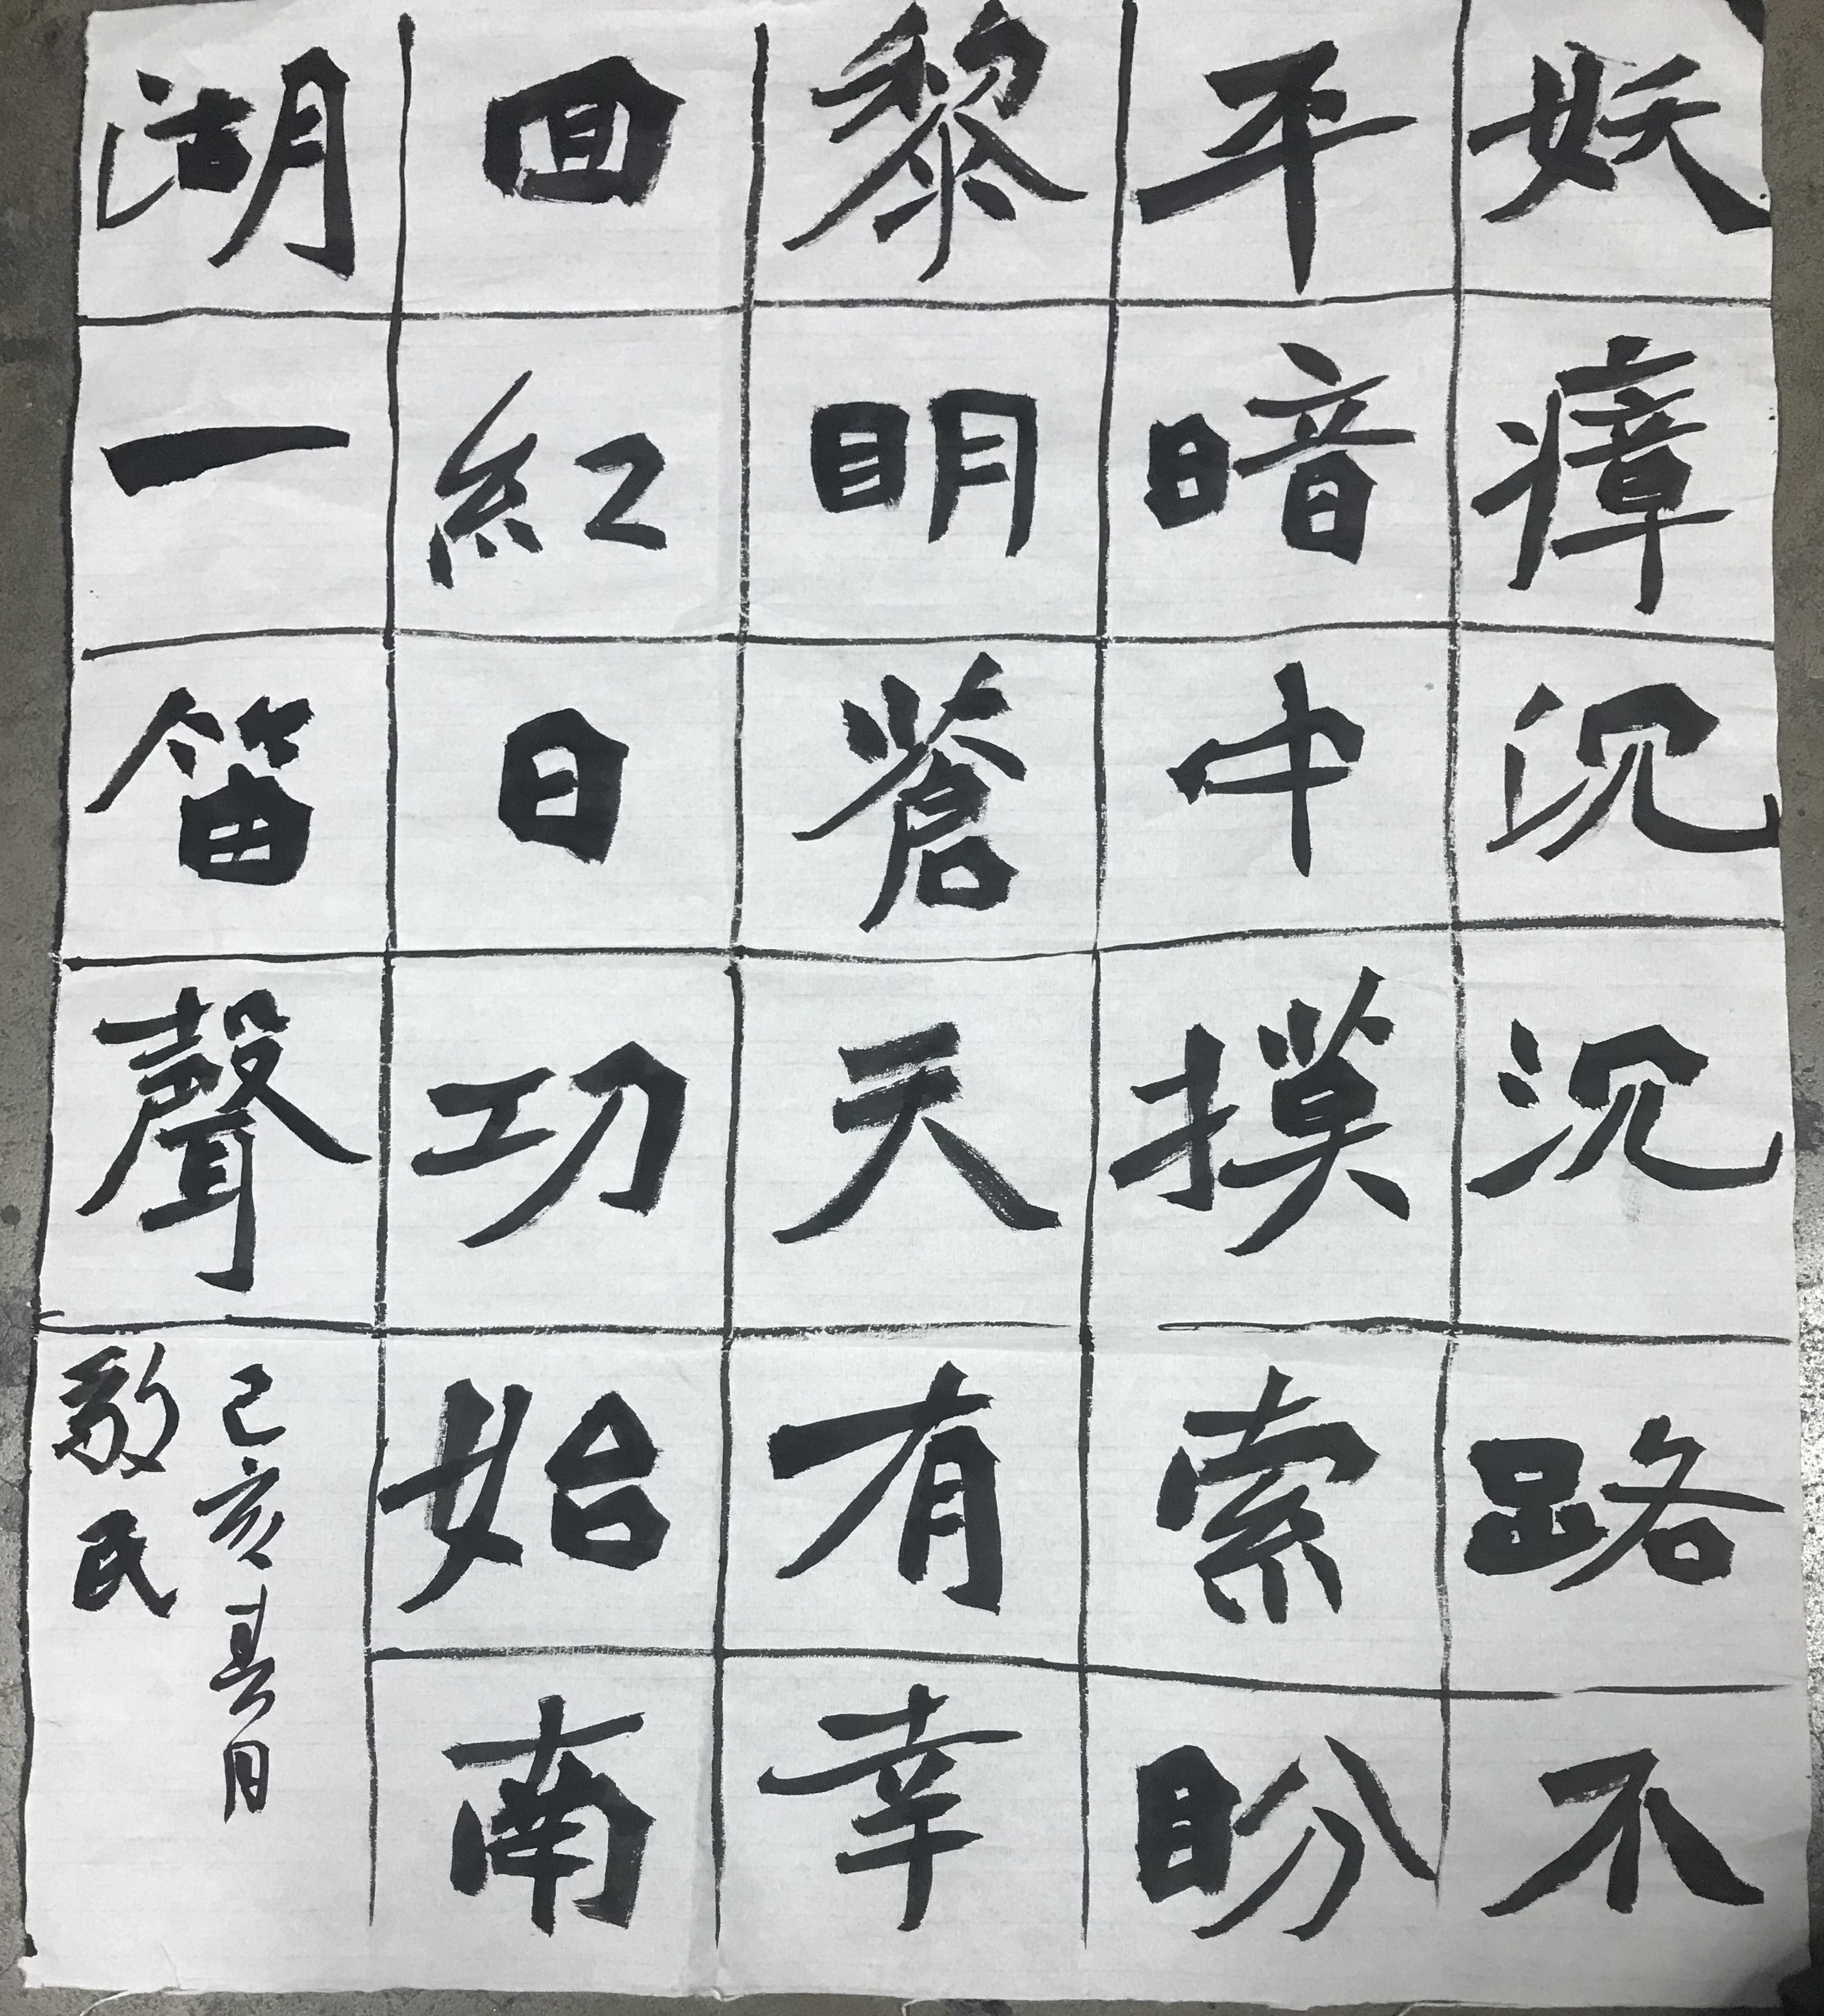 妖瘴沉沉路不
平暗中摸索盼
黎明蒼天有幸
回紅日功始南
湖一笛聲
己亥春月
敬民